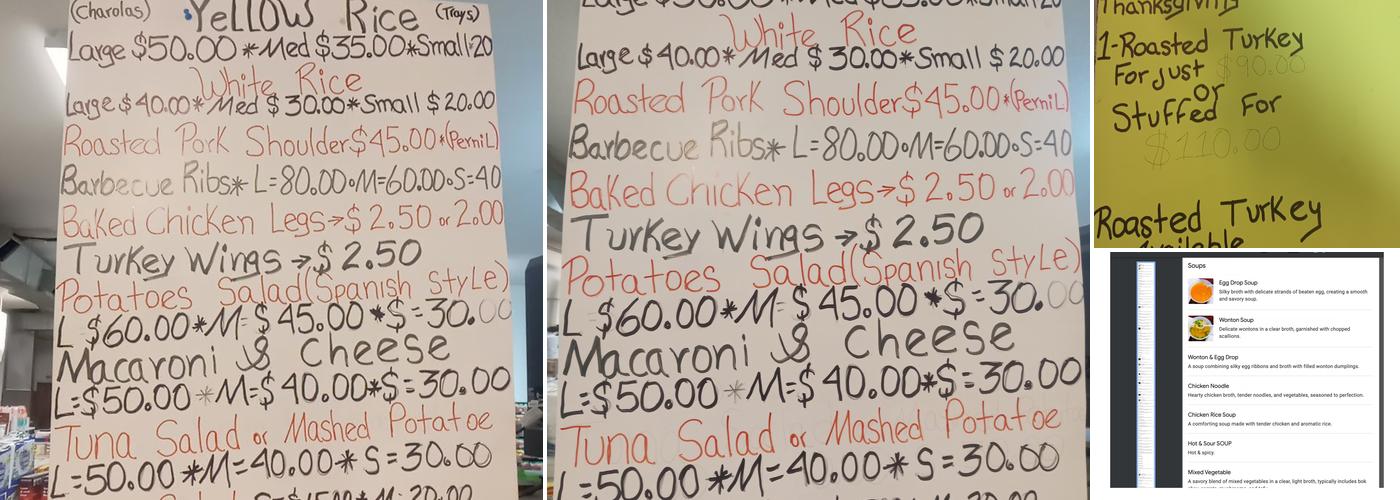 (Charolas) Yellow Rice (Trays)
Large $50.00 *Med $35.00*Small 20
White Rice
Large $40.00*Med $30.00*Small $20.00
Roasted Pork Shoulder $45.00*(Pernil)
Barbecue Ribs* L=80.00•M=60.00•S=40
Baked Chicken Legs→$2.50 or 2.00
Turkey Wings →$2.50
Potatoes Salad (Spanish Style)
L $60.00*M=$45.00*S=30.00
Macaroni & Cheese
L=$50.00*M=$40.00*S=30.00
Tuna Salad or Mashed Potatoe
L=50.00*M=40.00* S=30.00
White Rice
Large $40.00*Med $30.00*Small $20.00
Roasted Pork Shoulder $45.00*(Pernil)
Barbecue Ribs* L=80.00•M=60.00•S=40
Baked Chicken Legs→$2.50 or 2.00
Turkey Wings →$2.50
Potatoes Salad (Spanish Style)
L $60.00*M=$45.00*S=30.00
Macaroni & Cheese
L=$50.00*M=$40.00*S=30.00
Tuna Salad or Mashed Potatoe
L=50.00*M=40.00* S=30.00
Thanksgiving
1-Roasted Turkey
For Just $90.00
or
Stuffed For
$110.00
Roasted Turkey
Available
Soups
Egg Drop Soup
Silky broth with delicate strands of beaten egg, creating a smooth
and savory soup.
Wonton Soup
Delicate wontons in a clear broth, garnished with chopped
scallions.
Wonton & Egg Drop
A soup combining silky egg ribbons and broth with filled wonton dumplings.
Chicken Noodle
Hearty chicken broth, tender noodles, and vegetables, seasoned to perfection.
Chicken Rice Soup
A comforting soup made with tender chicken and aromatic rice.
Hot & Sour SOUP
Hot & spicy.
Mixed Vegetable
A savory blend of mixed vegetables in a clear, light broth, typically includes bok